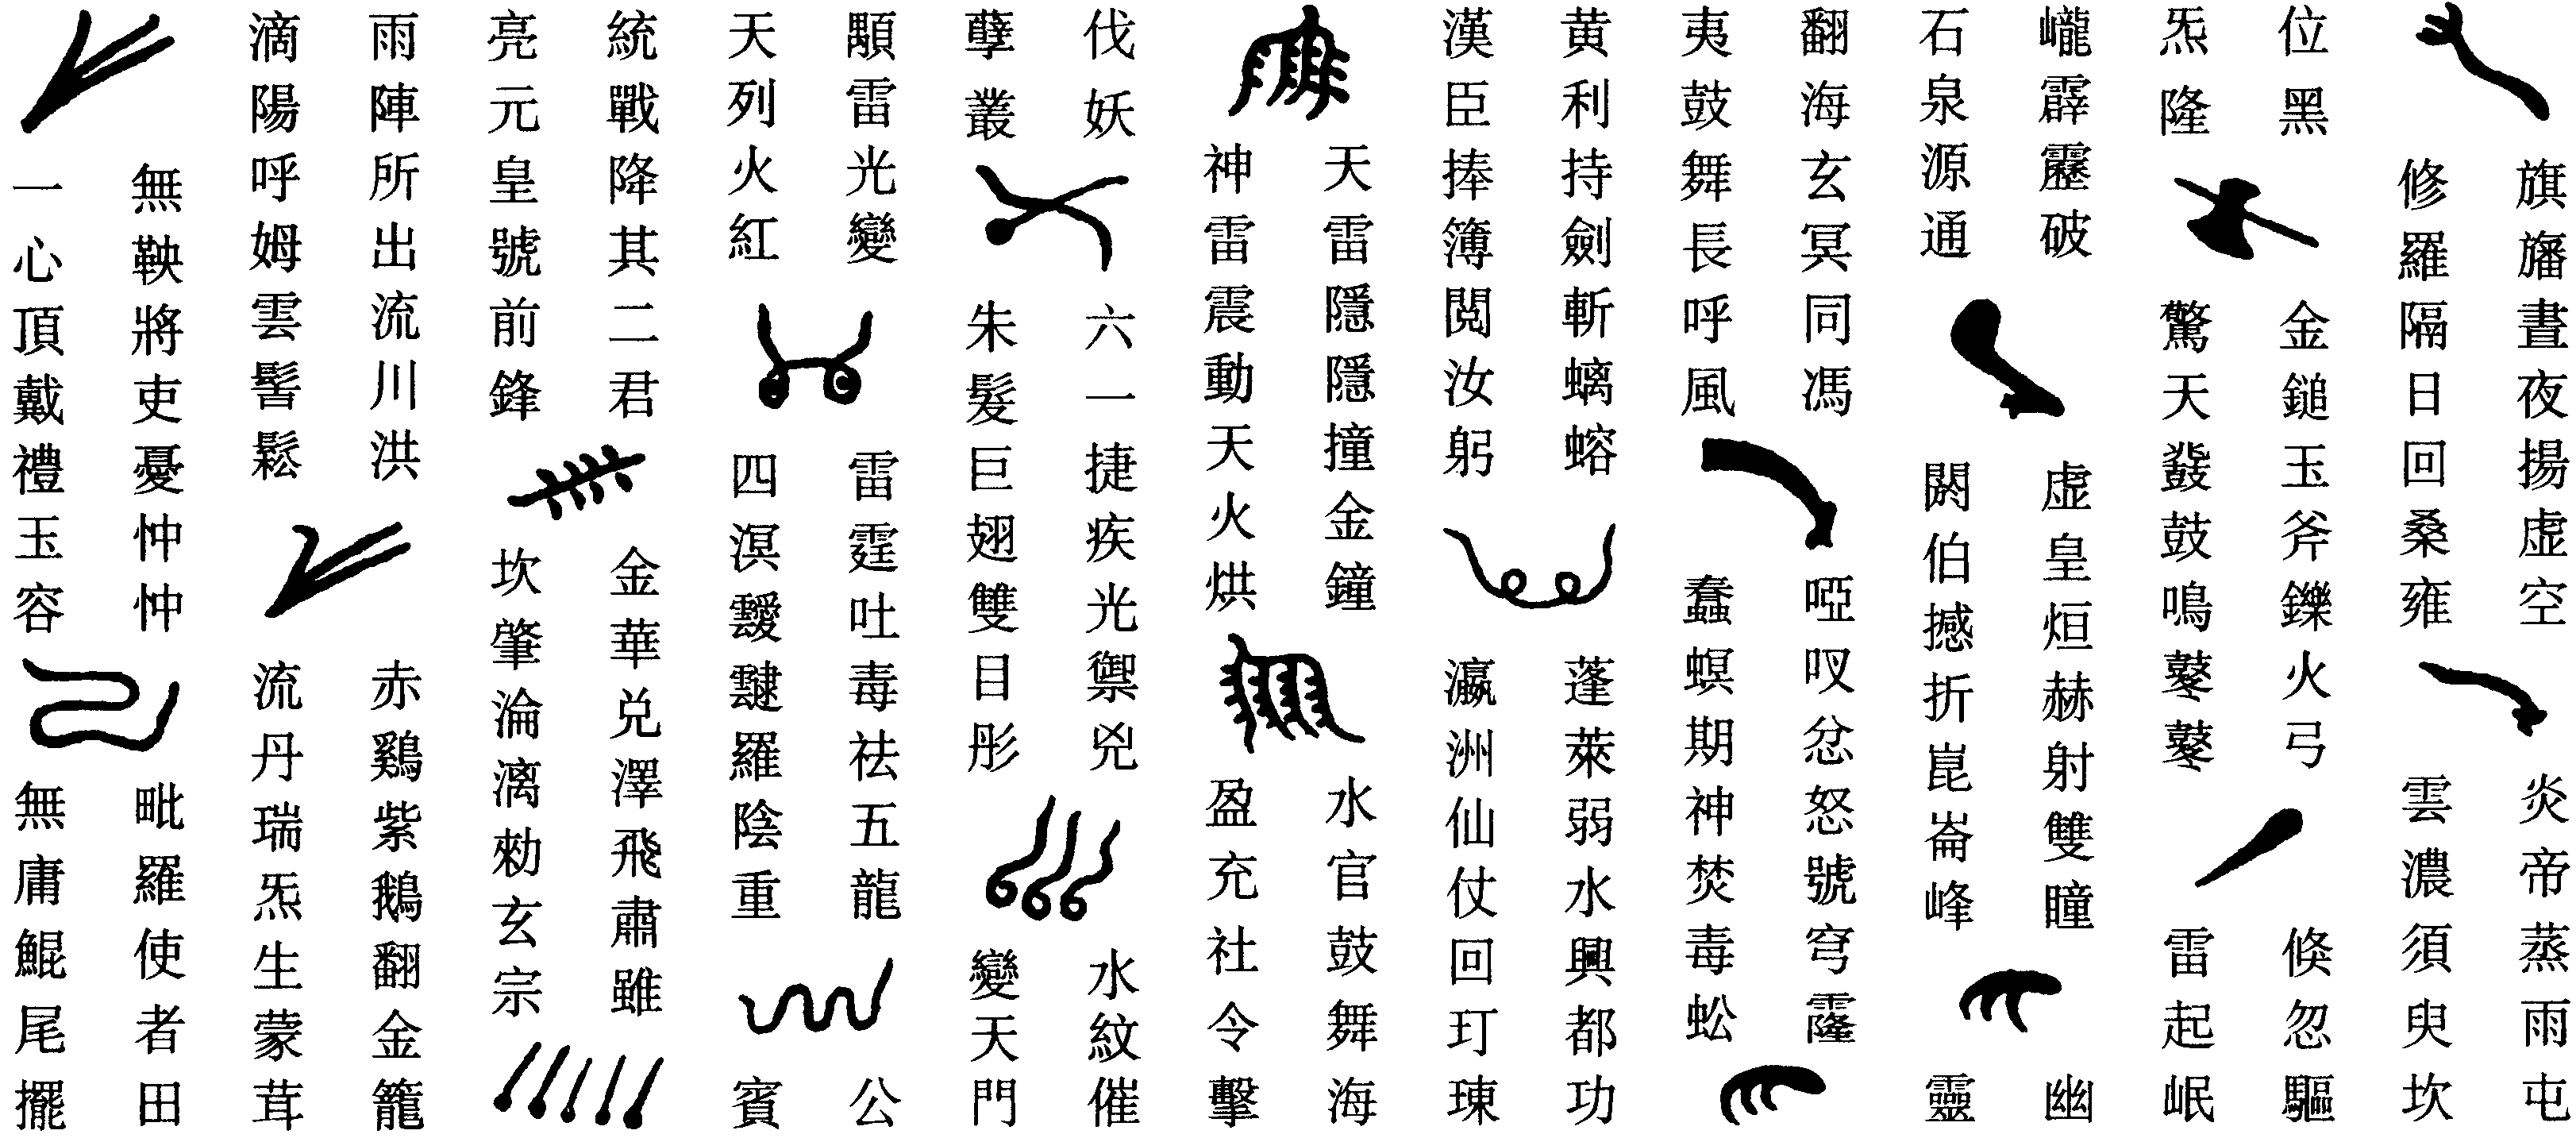 旗旛晝夜揚虛空
修羅隔日回桑雍
炎帝蒸雨屯
雲濃須臾坎
位黑
炁隆
金鎚玉斧鑠火弓
驚天鼗鼓鳴鼕鼕
倏忽驅
雷起岷
巄霹靂破
石泉源通
虛皇烜赫射雙瞳
閼伯撼折崑崙峰
幽
靈
翻海玄冥同馮
夷鼓舞長呼風
啞叹忿怒號穹霳
蠢螟期神焚毒蚣
黄利持劍斬螭螉
漢臣捧簿閱汝躬
蓬萊弱水興都功
瀛洲仙仗回玎琜
天雷隱隱撞金鐘
神雷震動天火烘
水官鼓舞海
盈充社令擊
伐妖
孽叢
六一捷疾光禦兇
朱髮巨翅雙目彤
水紋催
變天門
顒雷光變
天列火紅
雷霆吐毒祛五龍
四溟靉靆羅陰重
公
賓
統戰降其二君
亮元皇號前鋒
金華兌澤飛肅雖
坎肇淪漓勑玄宗
雨陣所出流川洪
滴陽呼姆雲髻鬆
赤鷄紫鵝翻金籠
流丹瑞炁生蒙茸
無鞅將吏憂忡忡
一心頂戴禮玉容
毗羅使者田
無庸鯤尾擺